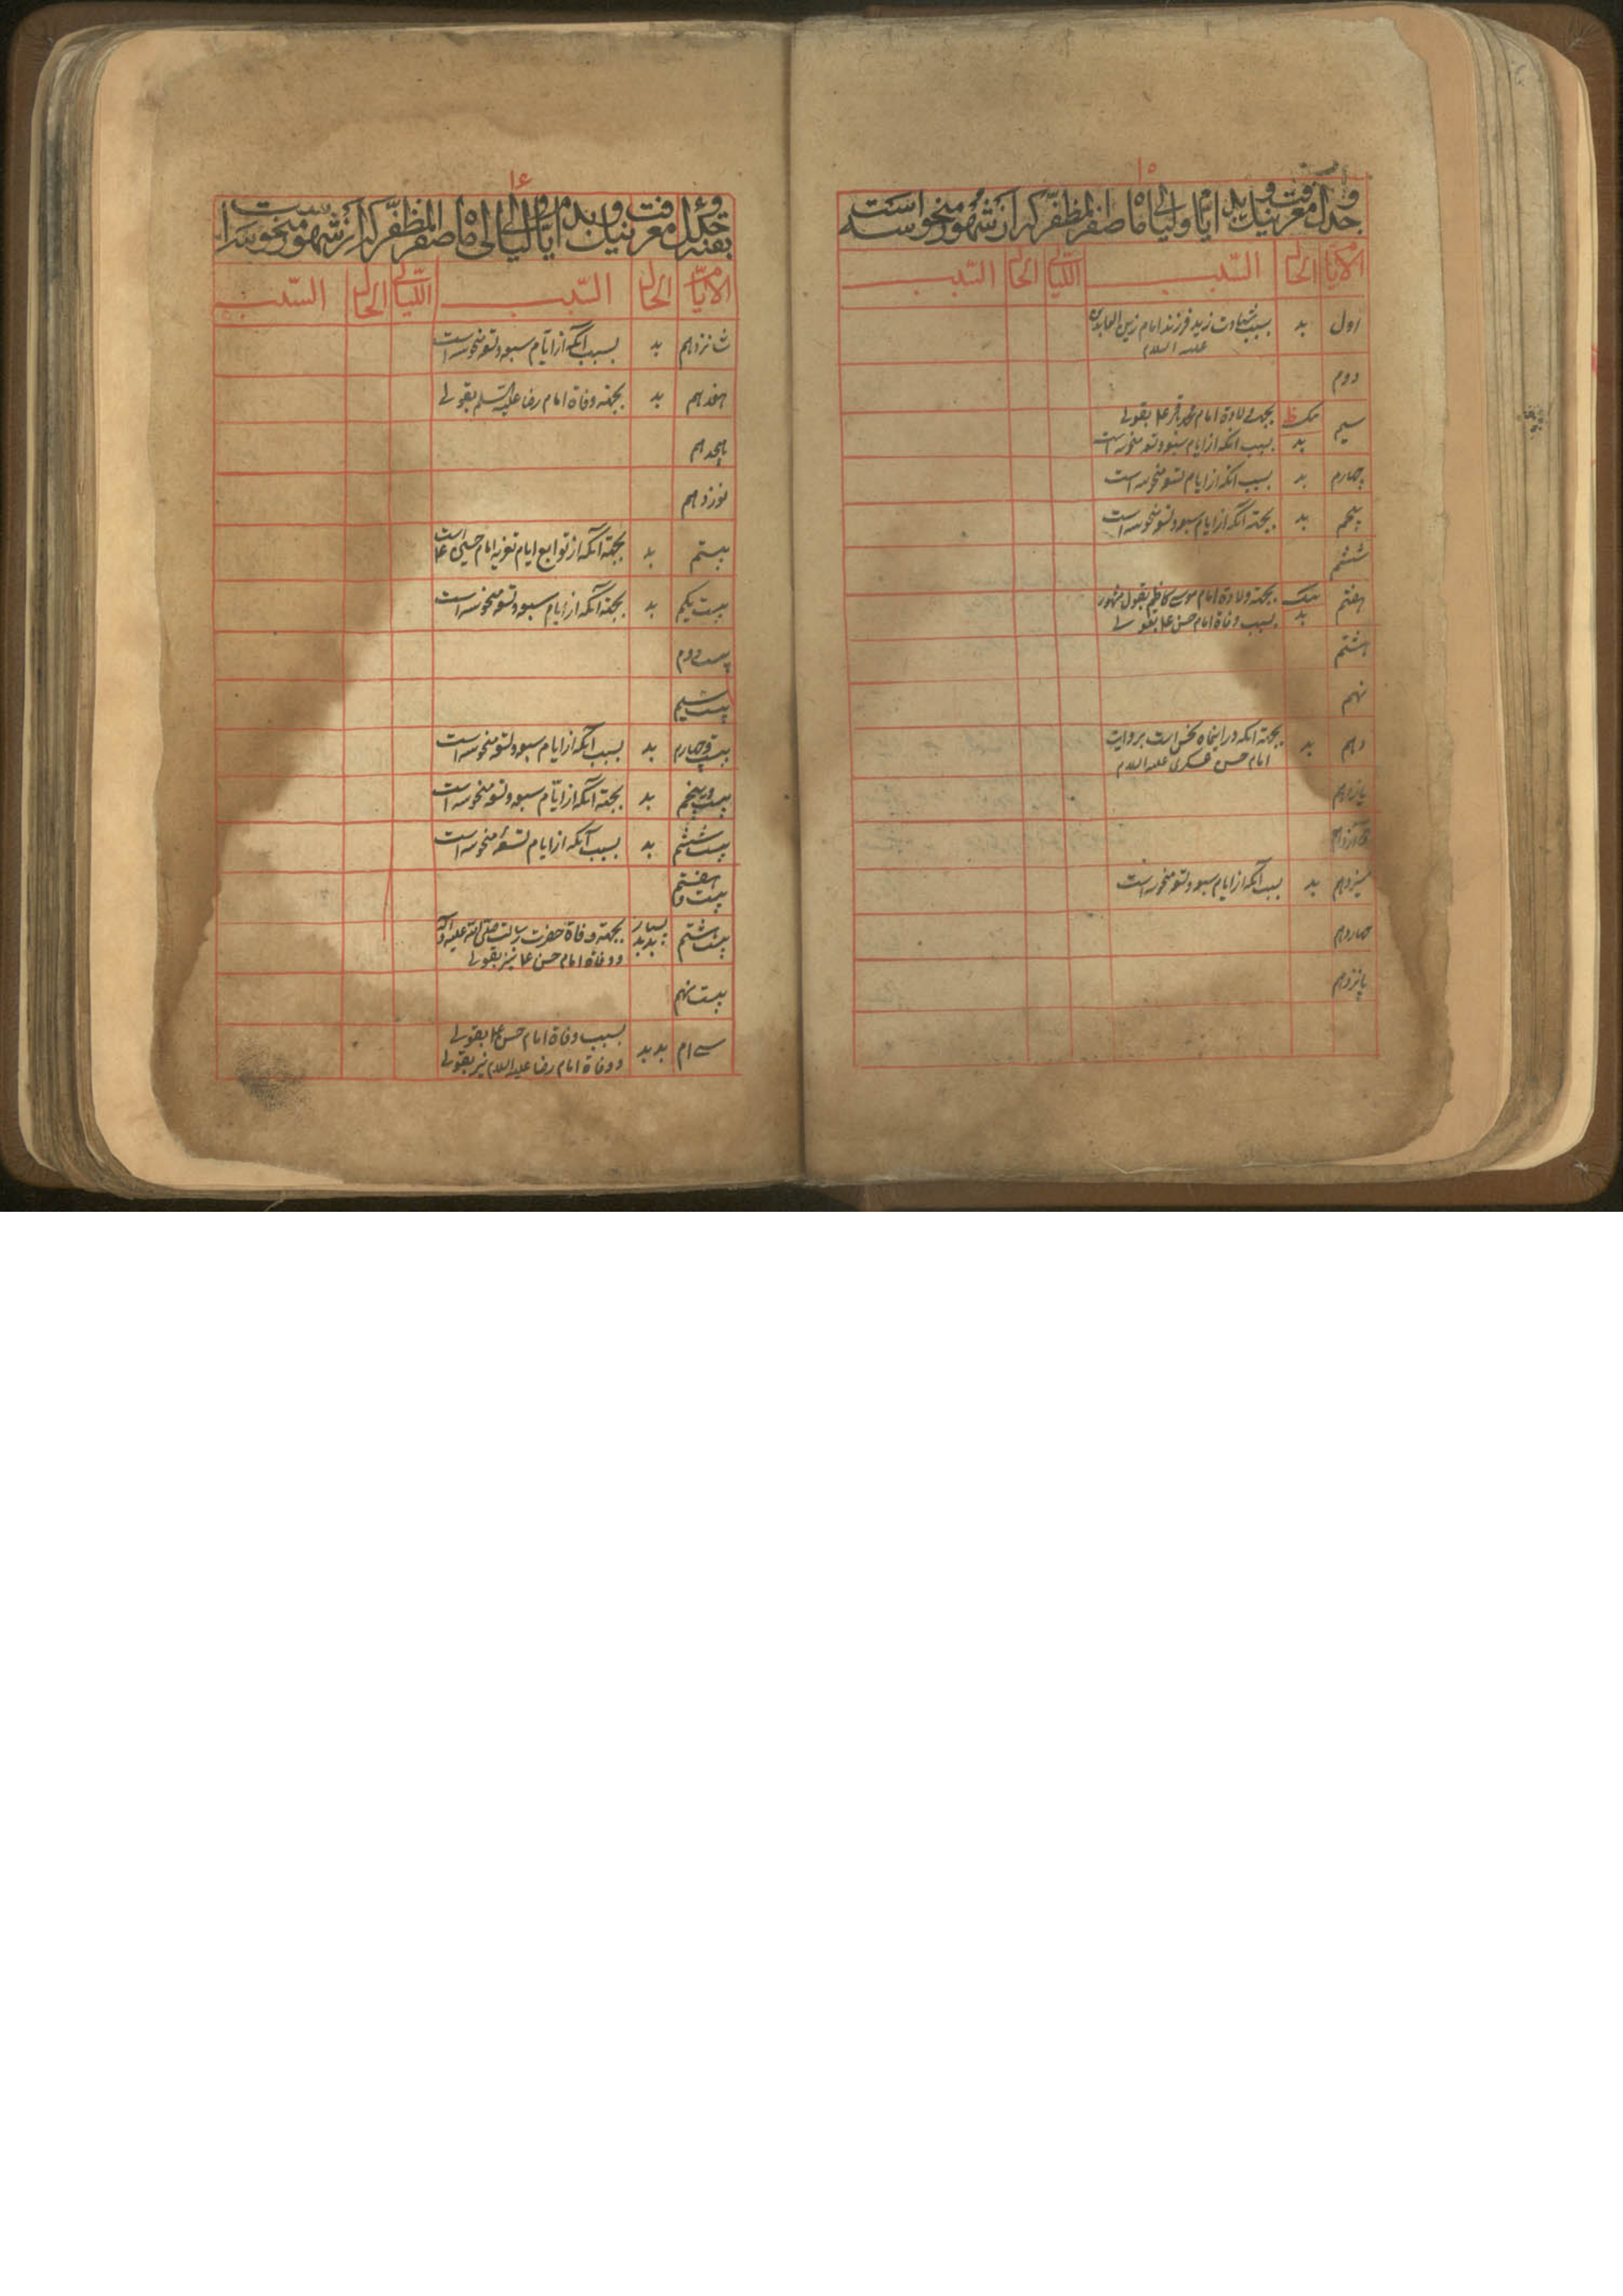 ۱۵
جدول معرفت نیک و بد ایام و لیالی ماه صفر المظفر که از شهور منحوسه است
الایام الحال السبب اللیالی الحال السبب
اول بد بسبب شهادت زید فرزند امام زین العابدین
علیه السلام
دوم
سیم نیک بجهة ولادة امام محمد باقر ع بقولی
بد بسبب آنکه از ایام سبعه و تسعه منحوسه است
چهارم بد بسبب آنکه از ایام تسعه منحوسه است
پنجم بد بجهة آنکه از ایام سبعه و تسعه منحوسه است
ششم
هفتم نیک بجهة ولادة امام موسی کاظم بقول مشهور
بد بسبب وفاة امام حسن ع بقولی
هشتم
نهم
دهم بد بجهة آنکه در اینماه نحس است بروایت
امام حسن عسکری علیه السلام
یازدهم
دوازدهم
سیزدهم بد بسبب آنکه از ایام سبعه و تسعه منحوسه است
چهاردهم
پانزدهم
۱۶
بقیه جدول معرفت نیک و بد ایام و لیالی ماه صفر المظفر که از شهور منحوسه است
الایام الحال السبب اللیالی الحال السبب
شانزدهم بد بسبب آنکه از ایام سبعه و تسعه منحوسه است
هفدهم بد بجهة وفاة امام رضا علیه السلم بقولی
هجدهم
نوزدهم
بیستم بد بجهة آنکه از توابع ایام تعزیه امام حسین ع است
بیست یکم بد بجهة آنکه از ایام سبعه و تسعه منحوسه است
بیست دوم
بیست سیم
بیست و چهارم بد بسبب آنکه از ایام سبعه و تسعه منحوسه است
بیست و پنجم بد بجهة آنکه از ایام سبعه و تسعه منحوسه است
بیست ششم بد بسبب آنکه از ایام تسعه منحوسه است
بیست و هفتم
بیست هشتم بسیار بد بد بجهة وفاة حضرت رسالت صلی الله علیه و آله
و وفاة امام حسن ع نیز بقولی
بیست نهم
سی ام بد بد بسبب وفاة امام حسن ع بقولی
و وفاة امام رضا علیه السلام نیز بقولی